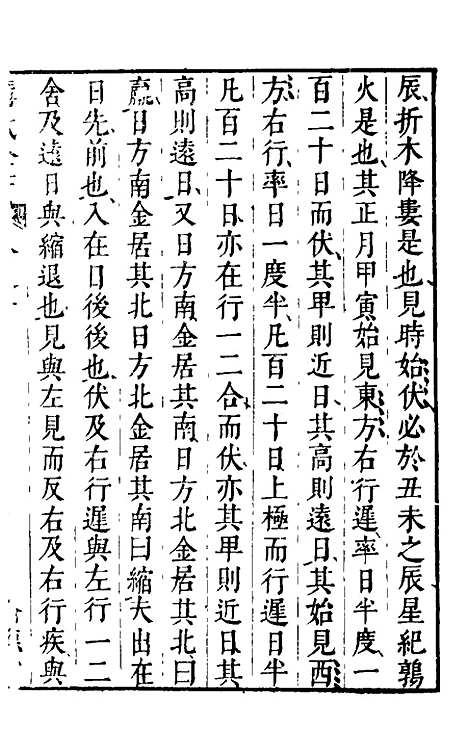 辰折木降婁是也見時始伏必於丑未之辰星紀鶉
火是也其正月甲寅始見東方右行遲率日半度一
百二十日而伏其卑則近日其高則遠日其始見西
方右行率日一度半凡百二十日上極而行遲日半
凡百二十日亦在行一二合而伏亦其卑則近日其
高則遠日又日方南金居其南日方北金居其北曰
贏日方南金居其北日方北金居其南曰縮夫出在
日先前也入在日後後也伏及右行遲與左行一二
舍及遠日與縮退也見與左見而反右及右行疾與